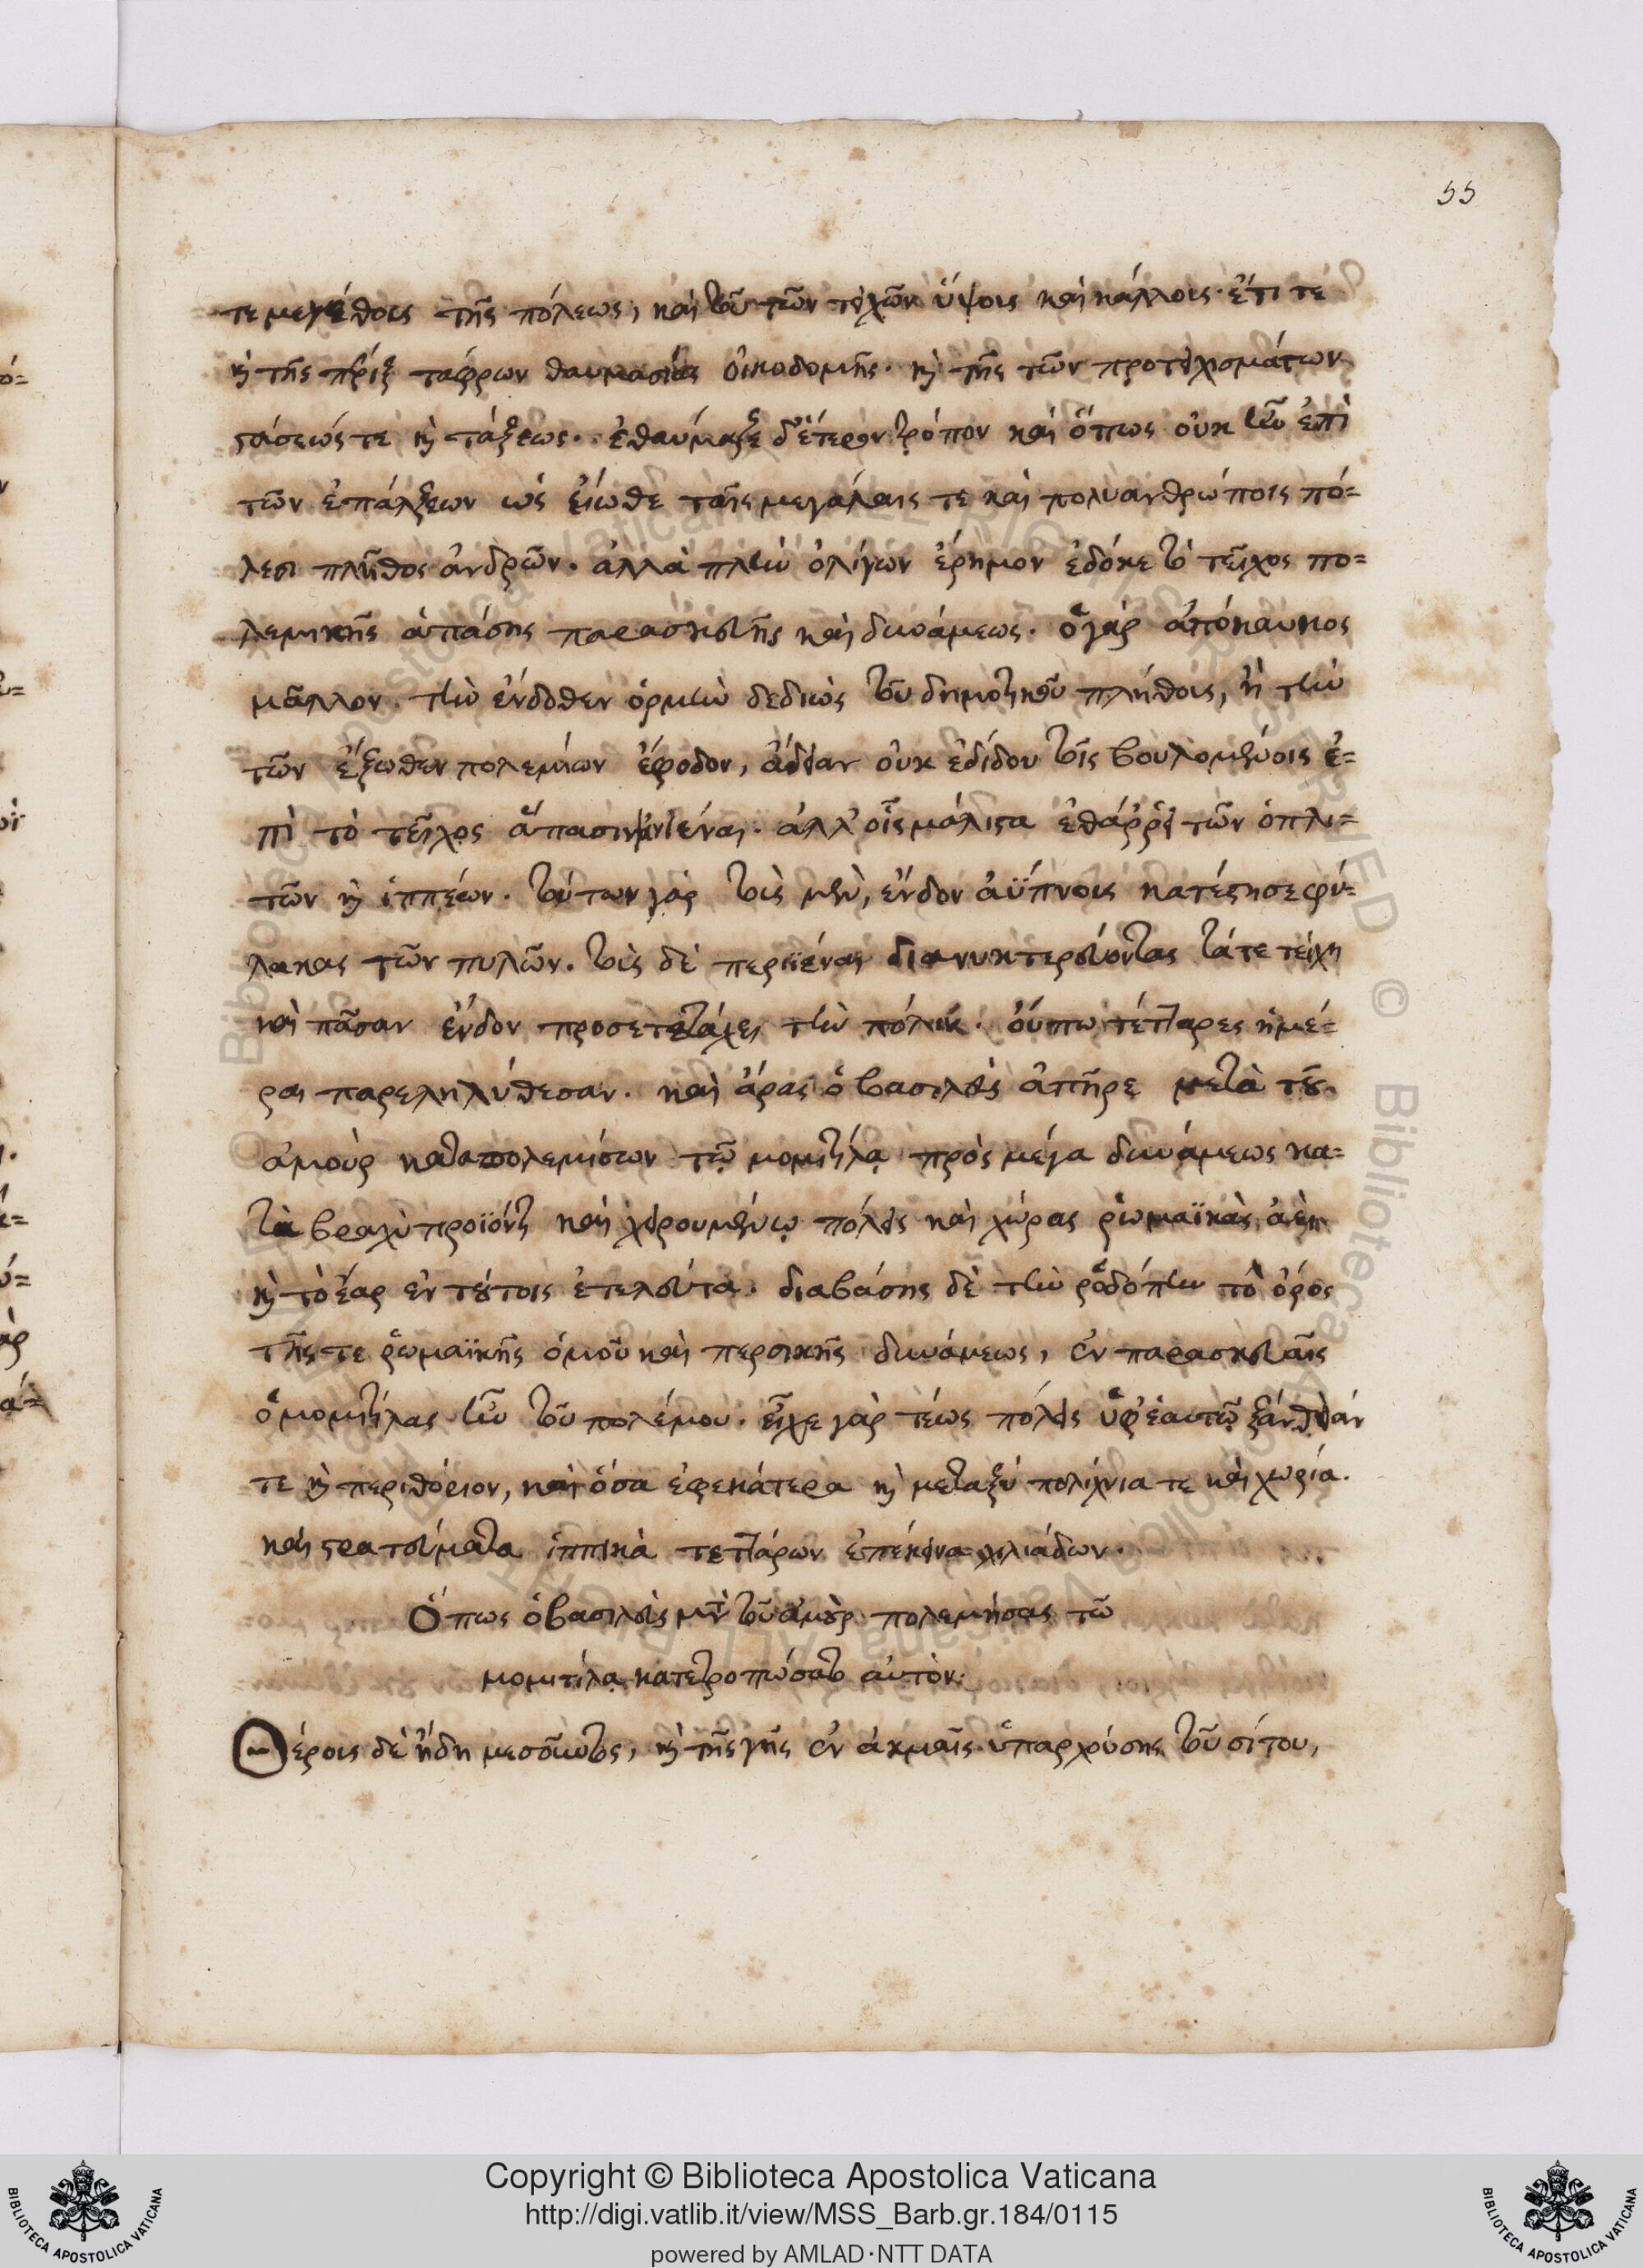 55
τε μεγέθους τῆς πόλεως, καὶ τοῦ τῶν τειχῶν ὕψους καὶ κάλλους· ἔτι τε
καὶ τῆς πέριξ τάφρων θαυμασίας οἰκοδομῆς· καὶ τῆς τῶν προτειχισμάτων
στάσεώς τε καὶ τάξεως. ἐθαύμαζε δ' ἕτερον τρόπον καὶ ὅπως οὐκ ἦν ἐπὶ
τῶν ἐπάλξεων ὡς εἴωθε ταῖς μεγάλαις τε καὶ πολυανθρώποις πό=
λεσι πλῆθος ἀνδρῶν. ἀλλὰ πλὴν ὀλίγων ἔρημον ἐδόκει τὸ τεῖχος πο=
λεμικῆς ἁπάσης παρασκευῆς καὶ δυνάμεως. ὁ γάρ ἀπόκαυκος
μᾶλλον τὴν ἔνδοθεν ὁρμὴν δεδιὼς τοῦ δημοτικοῦ πλήθους, ἢ τὴν
τῶν ἔξωθεν πολεμίων ἔφοδον, ἄδειαν οὐκ ἐδίδου τοῖς βουλομένοις ἐ=
πὶ τὸ τεῖχος ἅπασιν ἀνιέναι. ἀλλ' οἷς μάλιστα ἐθάῤῥει τῶν ὁπλι=
τῶν καὶ ἱππέων. τούτων γὰρ τοὺς μὲν, ἔνδον ἀΰπνους κατέστησε φύ=
λακας τῶν πυλῶν. τοὺς δὲ περιϊέναι διανυκτερεύοντας τά τε τείχη
καὶ πᾶσαν ἔνδον προσετετάχει τὴν πόλιν. οὔπω τέτταρες ἡμέ=
ραι παρεληλύθεσαν. καὶ ἄρας ὁ βασιλεὺς ἀπῆρε μετὰ τοῦ
ἀμοὺρ καταπολεμίσων τῷ μομιτίλᾳ πρὸς μέγα δυνάμεως κα=
τὰ βραχὺ προϊόντι καὶ χειρουμένῳ πόλεις καὶ χώρας ῥωμαϊκὰς ἀεὶ
καὶ τὸ ἔαρ ἐν τούτοις ἐτελεύτα. διαβάσης δὲ τὴν ῥοδόπην τὸ ὄρος
τῆς τε ῥωμαϊκῆς ὁμοῦ καὶ περσικῆς δυνάμεως, ἐν παρασκευαῖς
ὁ μομιτίλας ἦν τοῦ πολέμου. εἶχε γὰρ τέως πόλεις ὑφ' ἑαυτῷ ξάνθειάν
τε καὶ περιθόριον, καὶ ὅσα ἐφ' ἑκάτερα καὶ μεταξὺ πολίχνια τε καὶ χωρία.
καὶ στρατεύματα ἱππικὰ τεττάρων ἐπέκεινα χιλιάδων.
Ὅπως ὁ βασιλεὺς μετὰ τοῦ ἀμοὺρ πολεμήσας τῷ
μομιτίλᾳ κατετροπώσατο αὐτόν.
Θέρους δὲ ἤδη μεσοῦντος, καὶ τῆς γῆς ἐν ἀκμαῖς ὑπαρχούσης τοῦ σίτου,
Copyright © Biblioteca Apostolica Vaticana
http://digi.vatlib.it/view/MSS_Barb.gr.184/0115
powered by AMLAD·NTT DATA
BIBLIOTECA APOSTOLICA VATICANA
BIBLIOTECA APOSTOLICA VATICANA